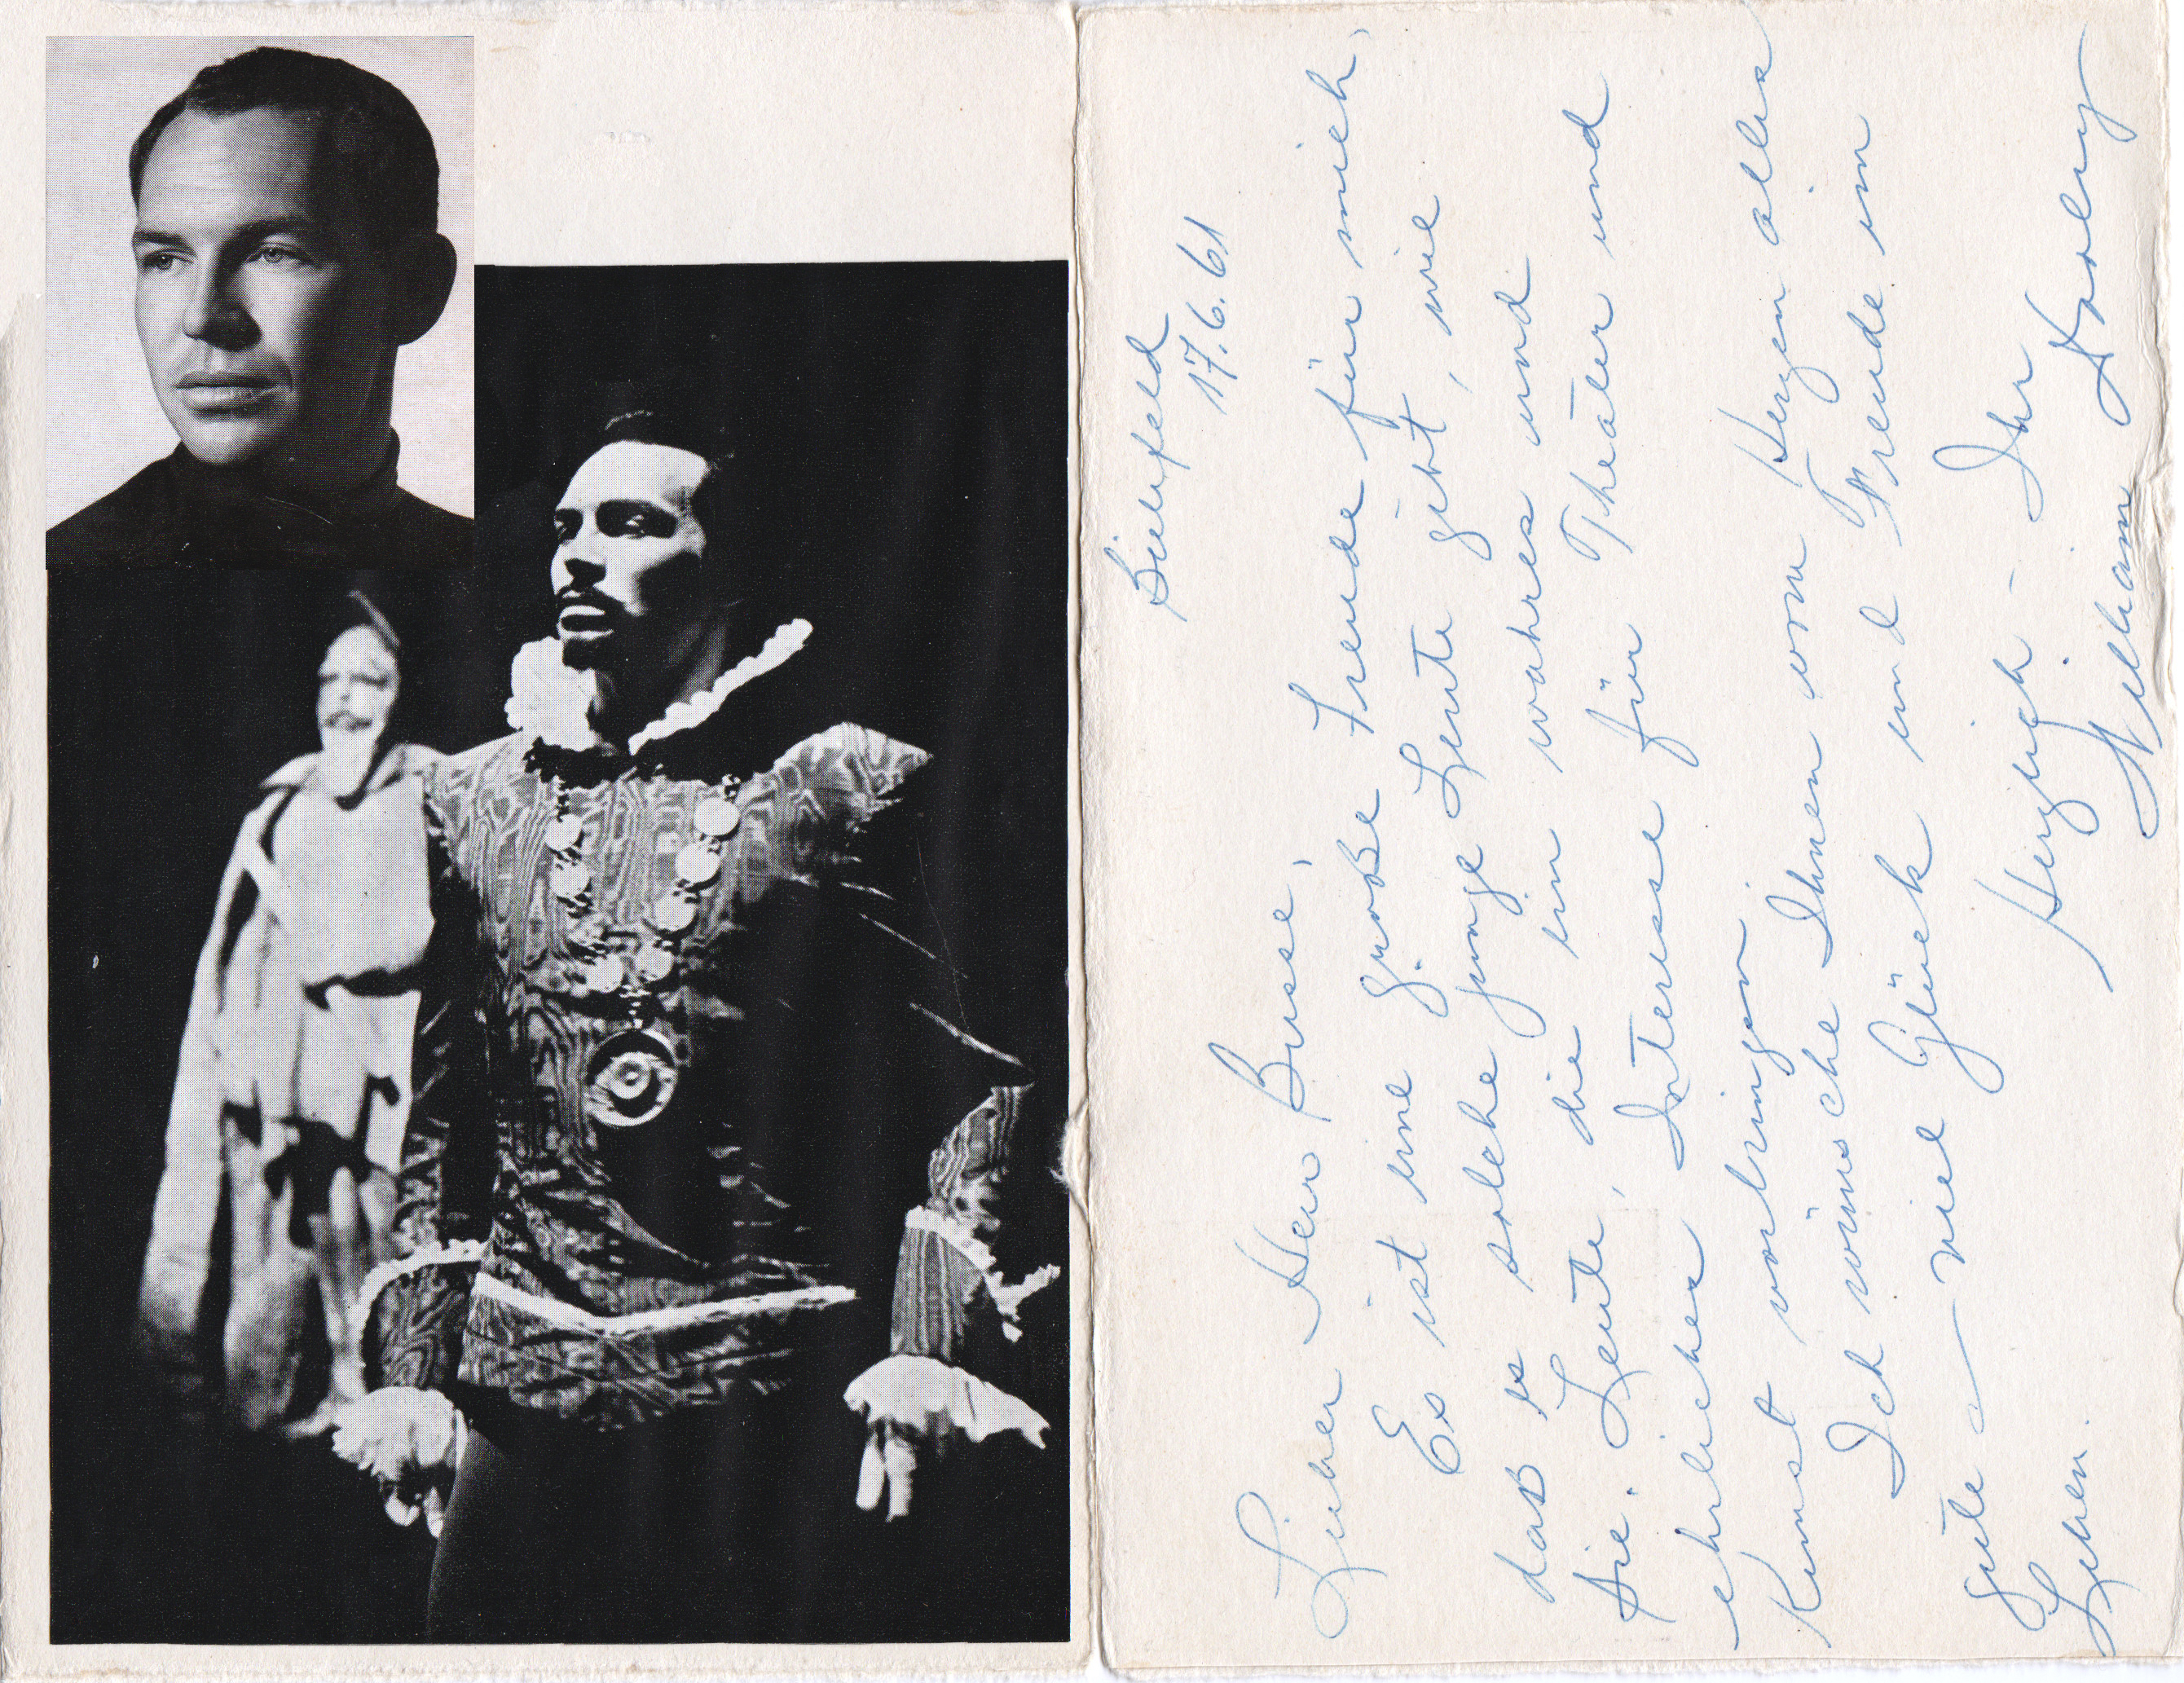 Bielefeld
17.6.61
Lieber Herr Busse,
Es ist eine große Freude für mich,
daß es solche junge Leute gibt, wie
Sie. Leute, die ein wahres und
ehrliches Interesse für Theater und
Kunst vorbringen.
Ich wünsche Ihnen vom Herzen alles
gute – viel Glück und Freude im
Leben.
Herzlich – Ihr
William